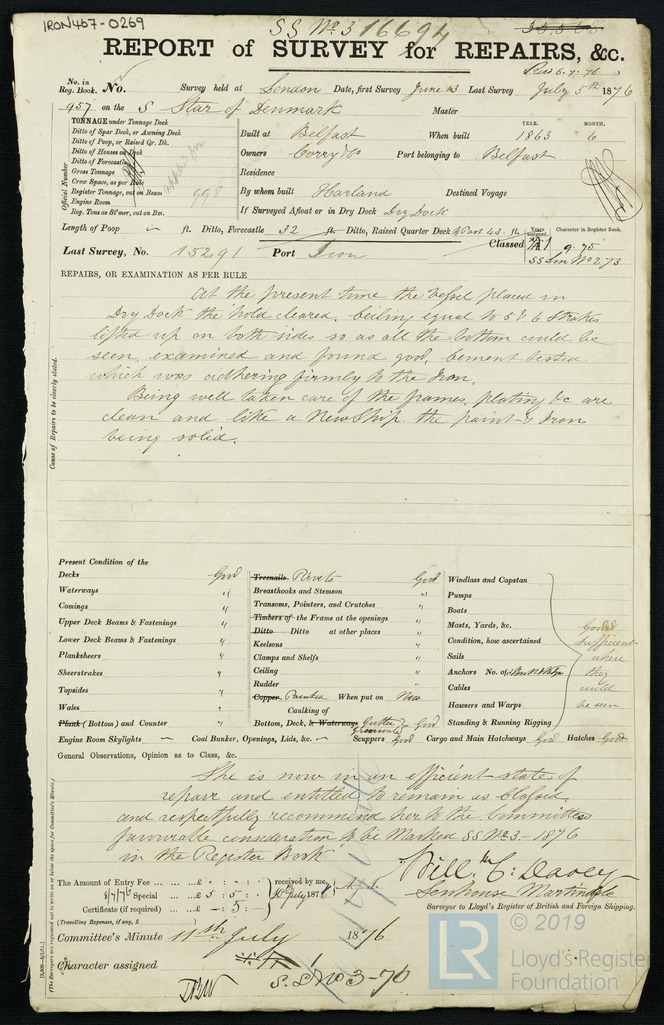 IRON467-0269
SS No. 3 16694
REPORT of SURVEY for REPAIRS, &c.
Rec 6.7.76
No. in Reg. Book. No. Survey held at London Date, first Survey June 3 Last Survey July 5th 1876
957 on the S Star of Denmark Master
TONNAGE under Tonnage Deck
Ditto of Spar Deck, or Awning Deck
Ditto of Poop, or Raised Qr. Dk.
Ditto of Houses on Deck
Ditto of Forecastle
Gross Tonnage
Crew Space, as per Rule
Register Tonnage, cut on Beam 998
Engine Room
Reg. Tons as St'mer, cut on Bm.
Official Number
YEAR. MONTH.
Built at Belfast When built 1863 6
Owners Corry & Co Port belonging to Belfast
Residence
By whom built Harland Destined Voyage
If Surveyed Afloat or in Dry Dock Dry Dock
Length of Poop ft. Ditto, Forecastle 32 ft. Ditto, Raised Quarter Deck & Part 43 ft.
Years assigned. Character in Register Book.
Classed A1 9.75
SS Lon No 2 73
Last Survey, No. 15291 Port Iron
REPAIRS, OR EXAMINATION AS PER RULE
At the present time the Vessel placed in
Dry Dock the hold cleared. Ceiling equal to 5 & 6 Strakes
lifted up on both sides so as all the bottom could be
seen, examined and found good, Cement tested
which was adhering firmly to the Iron.
Being well taken care of the frames, plating &c are
clean and like a New Ship, the paint & Iron
being solid.
Cause of Repairs to be clearly stated.
Present Condition of the
Decks Good
Waterways "
Comings "
Upper Deck Beams & Fastenings "
Lower Deck Beams & Fastenings "
Planksheers "
Sheerstrakes "
Topsides "
Wales "
Plank (Bottom) and Counter "
Treenails Rivets Good
Breasthooks and Stemson "
Transoms, Pointers, and Crutches "
Timbers of the Frame at the openings "
Ditto Ditto at other places "
Keelsons "
Clamps and Shelfs "
Ceiling "
Rudder "
Copper Painted When put on New
Caulking of
Bottom, Deck, & Waterways Gutter & Good
Windlass and Capstan
Pumps
Boats
Masts, Yards, &c.
Condition, how ascertained
Sails
Anchors No. of
Cables
Hawsers and Warps
Standing & Running Rigging
Good & Sufficient
where
they
could
be seen
Engine Room Skylights Coal Bunker, Openings, Lids, &c. Scuppers Good Cargo and Main Hatchways Good Hatches Good
General Observations, Opinion as to Class, &c.
She is now in an efficient state of
repair and entitled to remain as Classed
and respectfully recommend her to the Committees
favourable consideration to be Marked SS No 3 - 1876
in the Register Book
The Amount of Entry Fee ... ... £ - : - : received by me,
8/7/76 Special ... £ 5 : 5 : 10th July 187
Certificate (if required) ... - : 5 :
(Travelling Expenses, if any, £ )
Will. H. C. Davey
Senhouse Martindale
Surveyor to Lloyd's Register of British and Foreign Shipping.
Committee's Minute 11th July 1876
Character assigned
S.S No 3-76
© 2019
LR Lloyd's Register Foundation